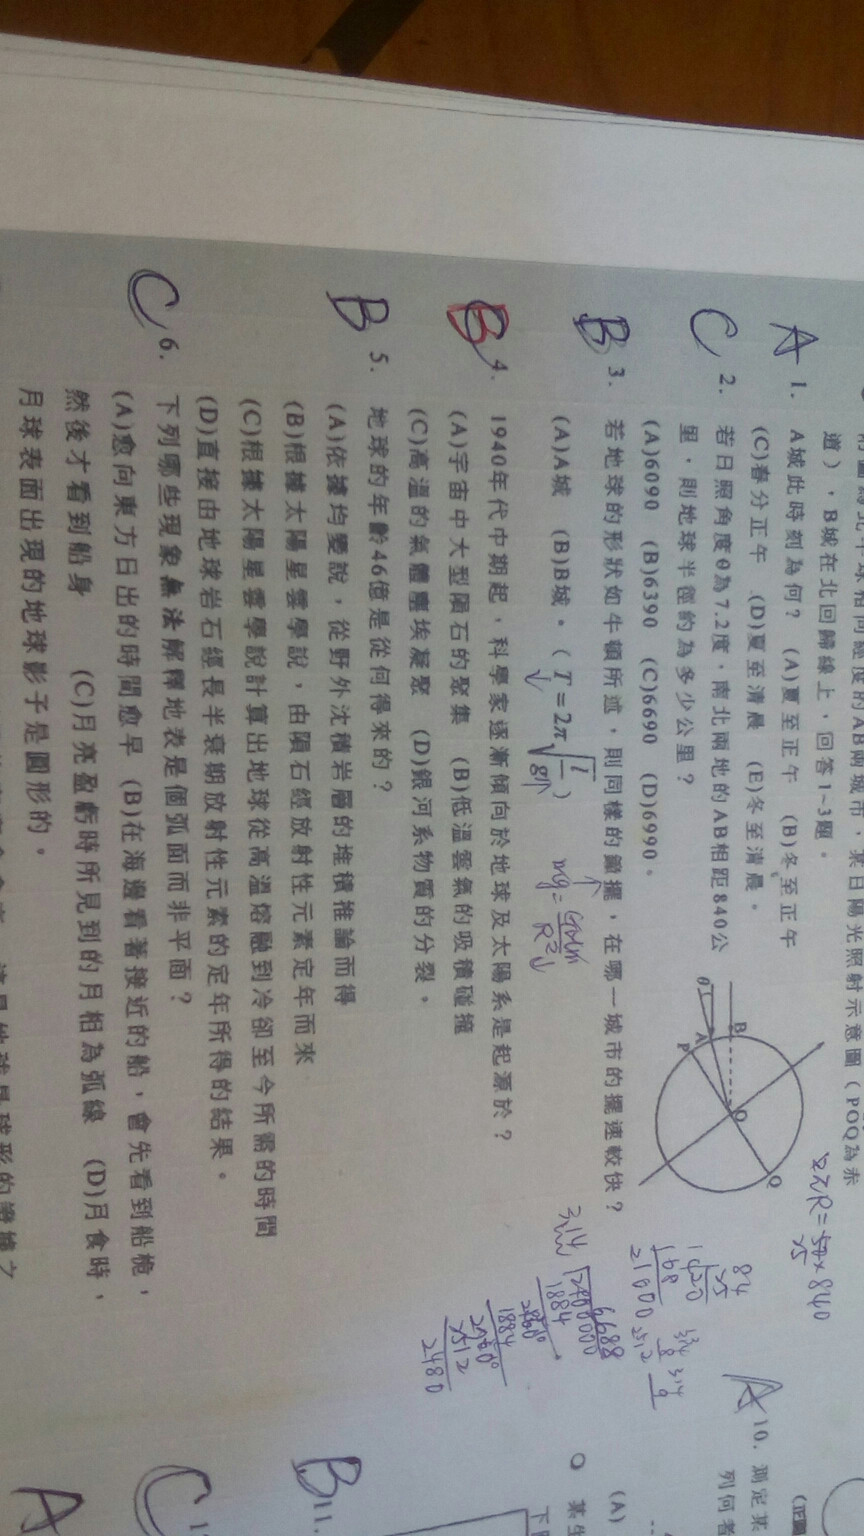 附圖為北半球相同經度的AB兩城市,某日陽光照射示意圖(POQ為赤
道),B城在北回歸線上,回答1~3題。
A 1. A城此時刻為何? (A)夏至正午 (B)冬至正午
(C)春分正午 (D)夏至清晨 (E)冬至清晨。
C 2. 若日照角度θ為7.2度,南北兩地的AB相距840公
里,則地球半徑約為多少公里?
(A)6090 (B)6390 (C)6690 (D)6990。
B 3. 若地球的形狀如牛頓所述,則同樣的鐘擺,在哪一城市的擺速較快?
(A)A城 (B)B城。(T=2π√(l/g))
B 4. 1940年代中期起,科學家逐漸傾向於地球及太陽系是起源於?
(A)宇宙中大型隕石的聚集 (B)低溫雲氣的吸積碰撞
(C)高溫的氣體塵埃凝聚 (D)銀河系物質的分裂。
B 5. 地球的年齡46億是從何得來的?
(A)依據均變說,從野外沈積岩層的堆積推論而得
(B)根據太陽星雲學說,由隕石經放射性元素定年而來
(C)根據太陽星雲學說計算出地球從高溫熔融到冷卻至今所需的時間
(D)直接由地球岩石經長半衰期放射性元素的定年所得的結果。
C 6. 下列哪些現象無法解釋地表是個弧面而非平面?
(A)愈向東方日出的時間愈早 (B)在海邊看著接近的船,會先看到船桅,
然後才看到船身 (C)月亮盈虧時所見到的月相為弧線 (D)月食時,
月球表面出現的地球影子是圓形的。
θ
A
B
P
O
Q
mg=GMm/R²↓
2πR=50×840
×5
84
×5
1420
168
21000
3.14
6688
2100000
1884
1884
2512
2480
A 10. 測定某
列何者
(A)
B 11.
C
A
某生